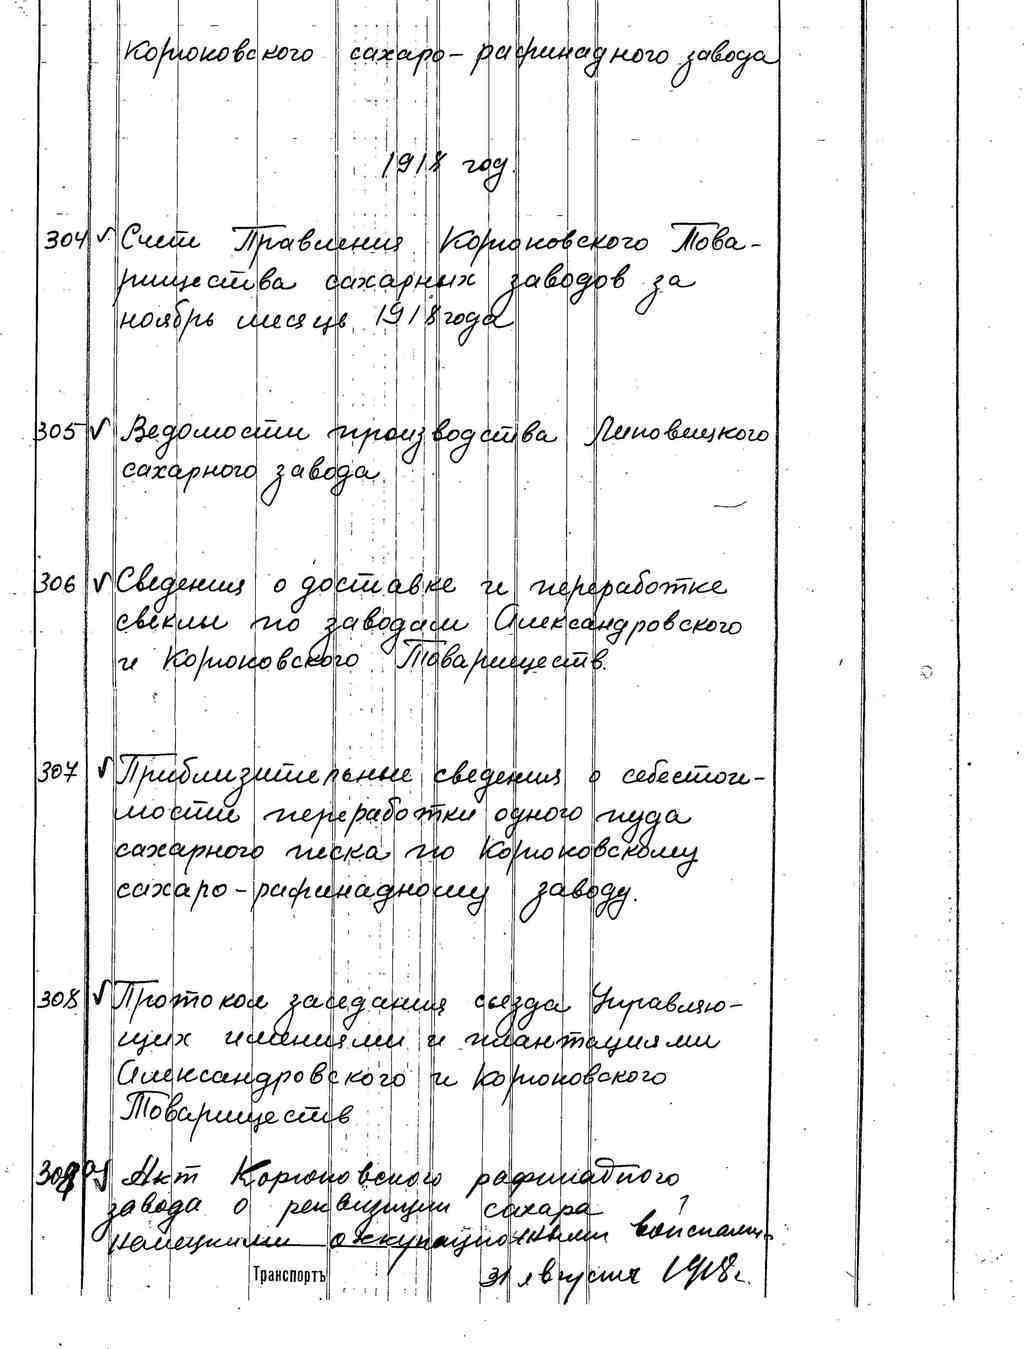 Корюковского сахаро-рафинадного завода
1918 год.
304 √ Счета Правления Корюковского Това-
рищества сахарных заводов за
ноябрь месяць 1918 года
305 √ Ведомости производства Липовецкого
сахарного завода.
306 √ Сведения о доставке и переработке
свеклы по заводам Александровского
и Корюковского Товариществ.
307 √ Приблизительные сведения о себестои-
мости переработки одного пуда
сахарного песка по Корюковскому
сахаро-рафинадному заводу.
308 √ Протокол заседания съезда Управляю-
щих имениями и плантациями
Александровского и Корюковского
Товариществ
308а √ Акт Корюковского рафинадного
завода о реквизиции сахара
немецкими оккупационными войсками
Транспортъ 31 августа 1918 г.